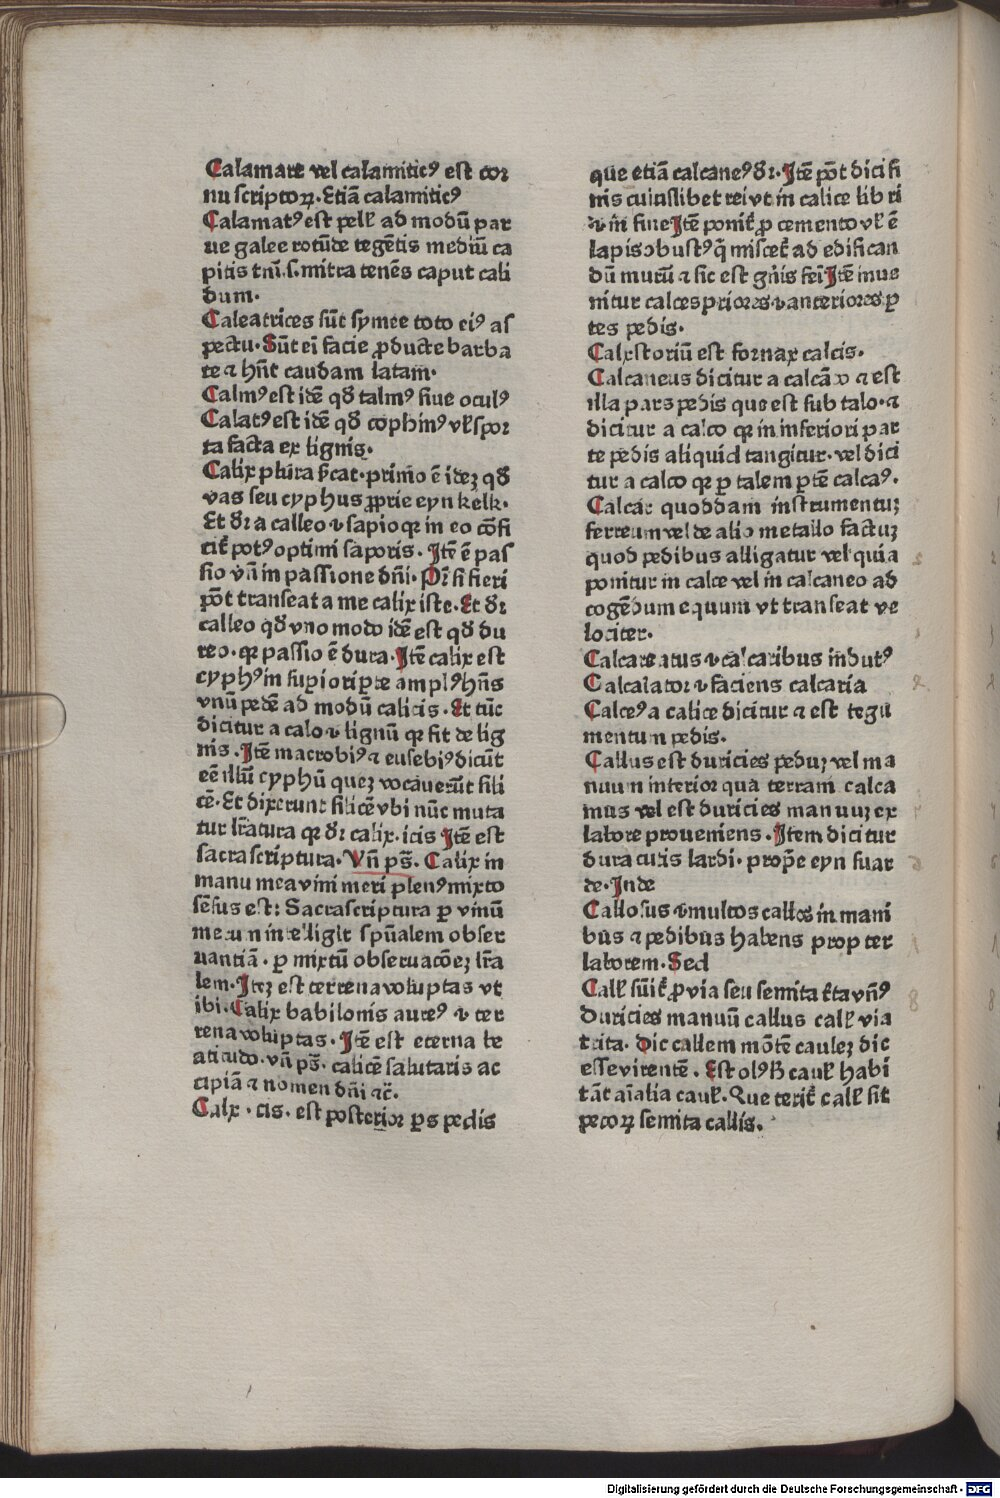 Calamare vel calamiticꝰ est cor
nu scriptoꝝ. Etiā calamiticꝰ
Calamatꝰ est pell' ad modū par
ue galee rotūde tegētis mediū ca
pitis tm̄.s. mitra tenēs caput cali
dum.
Caleatrices sūt symee toto eiꝰ as
pectu. Sūt em̄ facie ꝓducte barba
te ⁊ hn̄t caudam latam.
Calmꝰ est idē qd̄ talmꝰ siue oculꝰ
Calatꝰ est idē qd̄ cophinꝰ vl' spor
ta facta ex lignis.
Calix plura sꝰcat. primo ē idez qd̄
vas seu cyphus ꝓprie eyn kelk.
Et dr̄ a calleo ⁊ sapio qꝛ in eo cōfi
cit̄ potꝰ optimi saporis. Itē ē pas
sio vn̄ in passione dn̄i. Pr̄ si fieri
pōt transeat a me calix iste. Et dr̄
calleo qd̄ vno modo idē est qd̄ du
reo. qꝛ passio ē dura. Itē calix est
cyphꝰ in suꝑiori ꝑte amplꝰ hn̄s
vnū pedē ad modū calicis. Et tūc
dicitur a calo ⁊ lignū qꝛ fit de lig
nis. Itē macrobiꝰ ⁊ eusebiꝰ dicūt
eē illū cyphū quez vocauerūt sili
cē. Et dixerunt silicē vbi nūc muta
tur lr̄atura qꝛ dr̄ calix. icis Itē est
sacra scriptura. Vn̄ ps̄. Calix in
manu mea vini meri plenꝰ mixto
sēsus est: Sacra scriptura ꝑ vinū
merum intelligit spūalem obser
uantiā. ꝑ mixtū obseruacōez lr̄a
lem. Itez est terrena voluptas vt
ibi. Calix babilonis aureꝰ ⁊ ter
rena voluptas. Itē est eterna be
atitudo. vn̄ ps̄. calicē salutaris ac
cipiā ⁊ nomen dn̄i ⁊c̄.
Calx. cis. est posterior ꝑs pedis
que etiā calcaneꝰ dr̄. Itē pōt dici fi
nis cuiuslibet rei vt in calice libri
⁊ in fine Itē ponit̄ ꝓ cemento vl' ē
lapis obustꝰ q̄ miscet̄ ad edifican
dū murū ⁊ sic est gn̄is fei Itē inue
nitur calces priores ⁊ anteriores ꝑ
tes pedis.
Calxstoriū est fornax calcis.
Calcaneus dicitur a calcādo ⁊ est
illa pars pedis que est sub talo. ⁊
dicitur a calco qꝛ in inferiori par
te pedis aliquid tangitur. vel dici
tur a calco qꝛ ꝑ talem ꝑtē calcaꝰ.
Calcar quoddam instrumentuz
ferreum vel de alio metallo factuz
quod pedibus alligatur vel quia
ponitur in calce vel in calcaneo ad
cogēdum equum vt transeat ve
lociter.
Calcareatus ⁊ calcaribus indutꝰ
Calcalator ⁊ faciens calcaria
Calceꝰ a calice dicitur ⁊ est tegu
mentum pedis.
Callus est duricies peduz vel ma
nuum interior qua terram calca
mus vel est duricies manuuz ex
labore proueniens. Item dicitur
dura cutis lardi. prop̄e eyn suar
de. Inde
Callosus ⁊ multos callos in mani
bus ⁊ pedibus habens propter
laborem. Sed
Call' sūit̄ ꝓ via seu semita t̄ta vn̄ꝰ
Duricies manuū callus call' via
trita. Dic callem mōtē caulez dic
esse virentē. Est olꝰ ß caul' habi
tāt aīalia caul'. Que terit̄ call' sit
pecoꝝ semita callis.
Digitalisierung gefördert durch die Deutsche Forschungsgemeinschaft - DFG